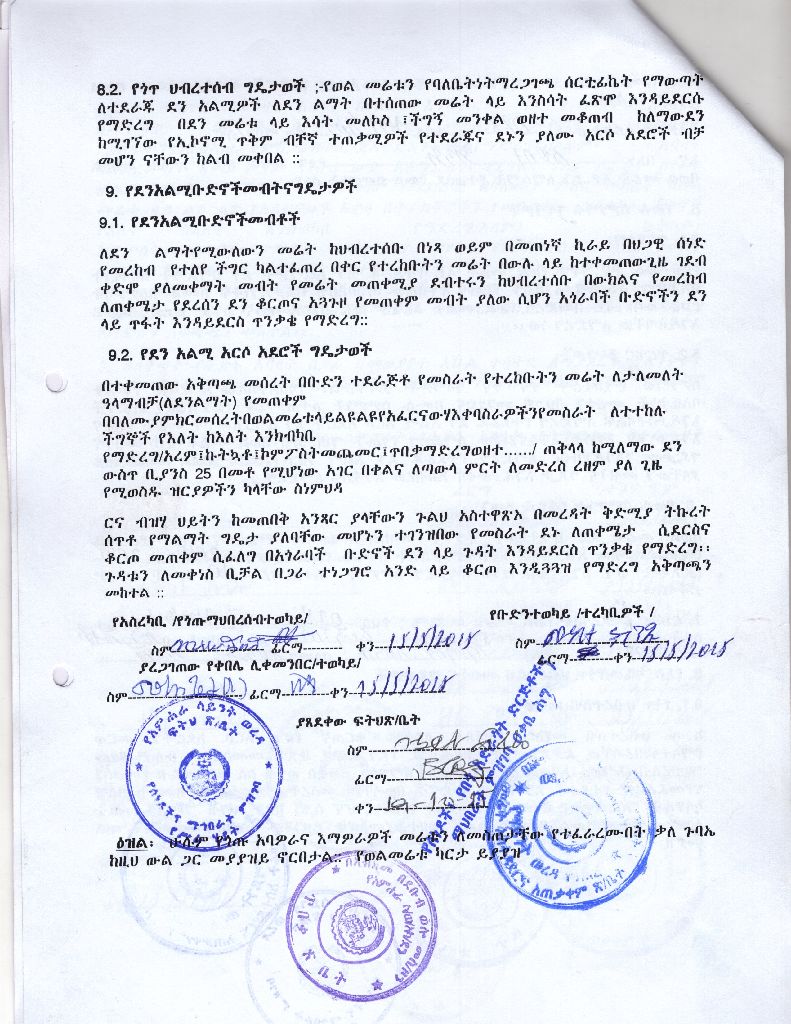 8.2. የጎጥ ህብረተሰብ ግዴታወች ;-የወል መሬቱን የባለቤትነትማረጋገጫ ሰርቲፊኬት የማውጣት
ለተደራጁ ደን አልሚዎች ለደን ልማት በተሰጠው መሬት ላይ እንስሳት ፈጽሞ እንዳይደርሱ
የማድረግ በደን መሬቱ ላይ እሳት መለኮስ ፣ችግኝ መንቀል ወዘተ መቆጠብ ከለማውደን
ከሚገኘው የኢኮኖሚ ጥቅም ብቸኛ ተጠቃሚዎች የተደራጁና ደኑን ያለሙ አርሶ አደሮች ብቻ
መሆን ናቸውን ከልብ መቀበል ፡፡
9. የደንአልሚቡድኖችመብትናግዴታዎች
9.1. የደንአልሚቡድኖችመብቶች
ለደን ልማትየሚውለውን መሬት ከህብረተሰቡ በነጻ ወይም በመጠነኛ ኪራይ በህጋዊ ሰነድ
የመረከብ የተለየ ችግር ካልተፈጠረ በቀር የተረከቡትን መሬት በውሉ ላይ ከተቀመጠውጊዜ ገደብ
ቀድሞ ያለመቀማት መብት የመሬት መጠቀሚያ ደብተሩን ከህብረተሰቡ በውክልና የመረከብ
ለጠቀሜታ የደረሰን ደን ቆርጦና አጓጉዞ የመጠቀም መብት ያለው ሲሆን አጎራባች ቡድኖችን ደን
ላይ ጥፋት እንዳይደርስ ጥንቃቄ የማድረግ፡፡
9.2. የደን አልሚ አርሶ አደሮች ግዴታወች
በተቀመጠው አቅጣጫ መሰረት በቡድን ተደራጅቶ የመስራት የተረከቡትን መሬት ለታለመለት
ዓላማብቻ(ለደንልማት) የመጠቀም
በባለሙያምክርመሰረትበወልመሬቱላይልዩልዩየአፈርናውሃእቀባስራዎችንየመስራት ለተተከሉ
ችግኞች የእለት ከእለት እንክብካቤ
የማድረግ/አረም፤ኩትኳቶ፤ኮምፖስትመጨመር፤ጥበቃማድረግወዘተ....../ ጠቅላላ ከሚለማው ደን
ውስጥ ቢያንስ 25 በመቶ የሚሆነው አገር በቀልና ለጣውላ ምርት ለመድረስ ረዘም ያለ ጊዜ
የሚወስዱ ዝርያዎችን ካላቸው ስነምህዳ
ርና ብዝሃ ህይትን ከመጠበቅ አንጻር ያላቸውን ጉልህ አስተዋጽኦ በመረዳት ቅድሚያ ትኩረት
ሰጥቶ የማልማት ግዴታ ያለባቸው መሆኑን ተገንዝበው የመስራት ደኑ ለጠቀሜታ ሲደርስና
ቆርጦ መጠቀም ሲፈለግ በአጎራባች ቡድኖች ደን ላይ ጉዳት እንዳይደርስ ጥንቃቄ የማድረግ፡፡
ጉዳቱን ለመቀነስ ቢቻል በጋራ ተነጋግሮ አንድ ላይ ቆርጦ እንዲጓጓዝ የማድረግ አቅጣጫን
መከተል ፡፡
የአስረካቢ /የጎጡማህበረሰብተወካይ/
የቡድንተወካይ /ተረካቢዎች /
ስም ፊርማ---------- ቀን 15/5/2015
ስም
ፊርማ ቀን 15/5/2015
ያረጋገጠው የቀበሌ ሊቀመንበር/ተወካይ/
ስም ፊርማ ቀን 15/5/2015
ያጸደቀው ፍትህጽ/ቤት
ስም
ፊርማ
ቀን
ዕዝል፡ ሁሉም የጎጡ አባዎራና እማዎራዎች መሬቱን ለመስጠታቸው የተፈራረሙበት ቃለ ጉባኤ
ከዚህ ውል ጋር መያያዝይ ኖርበታል፡፡ የወልመሬቱ ካርታ ይያያዝ
የአምሐራ ሳይንት ወረዳ
ፍትህ ጽ/ቤት